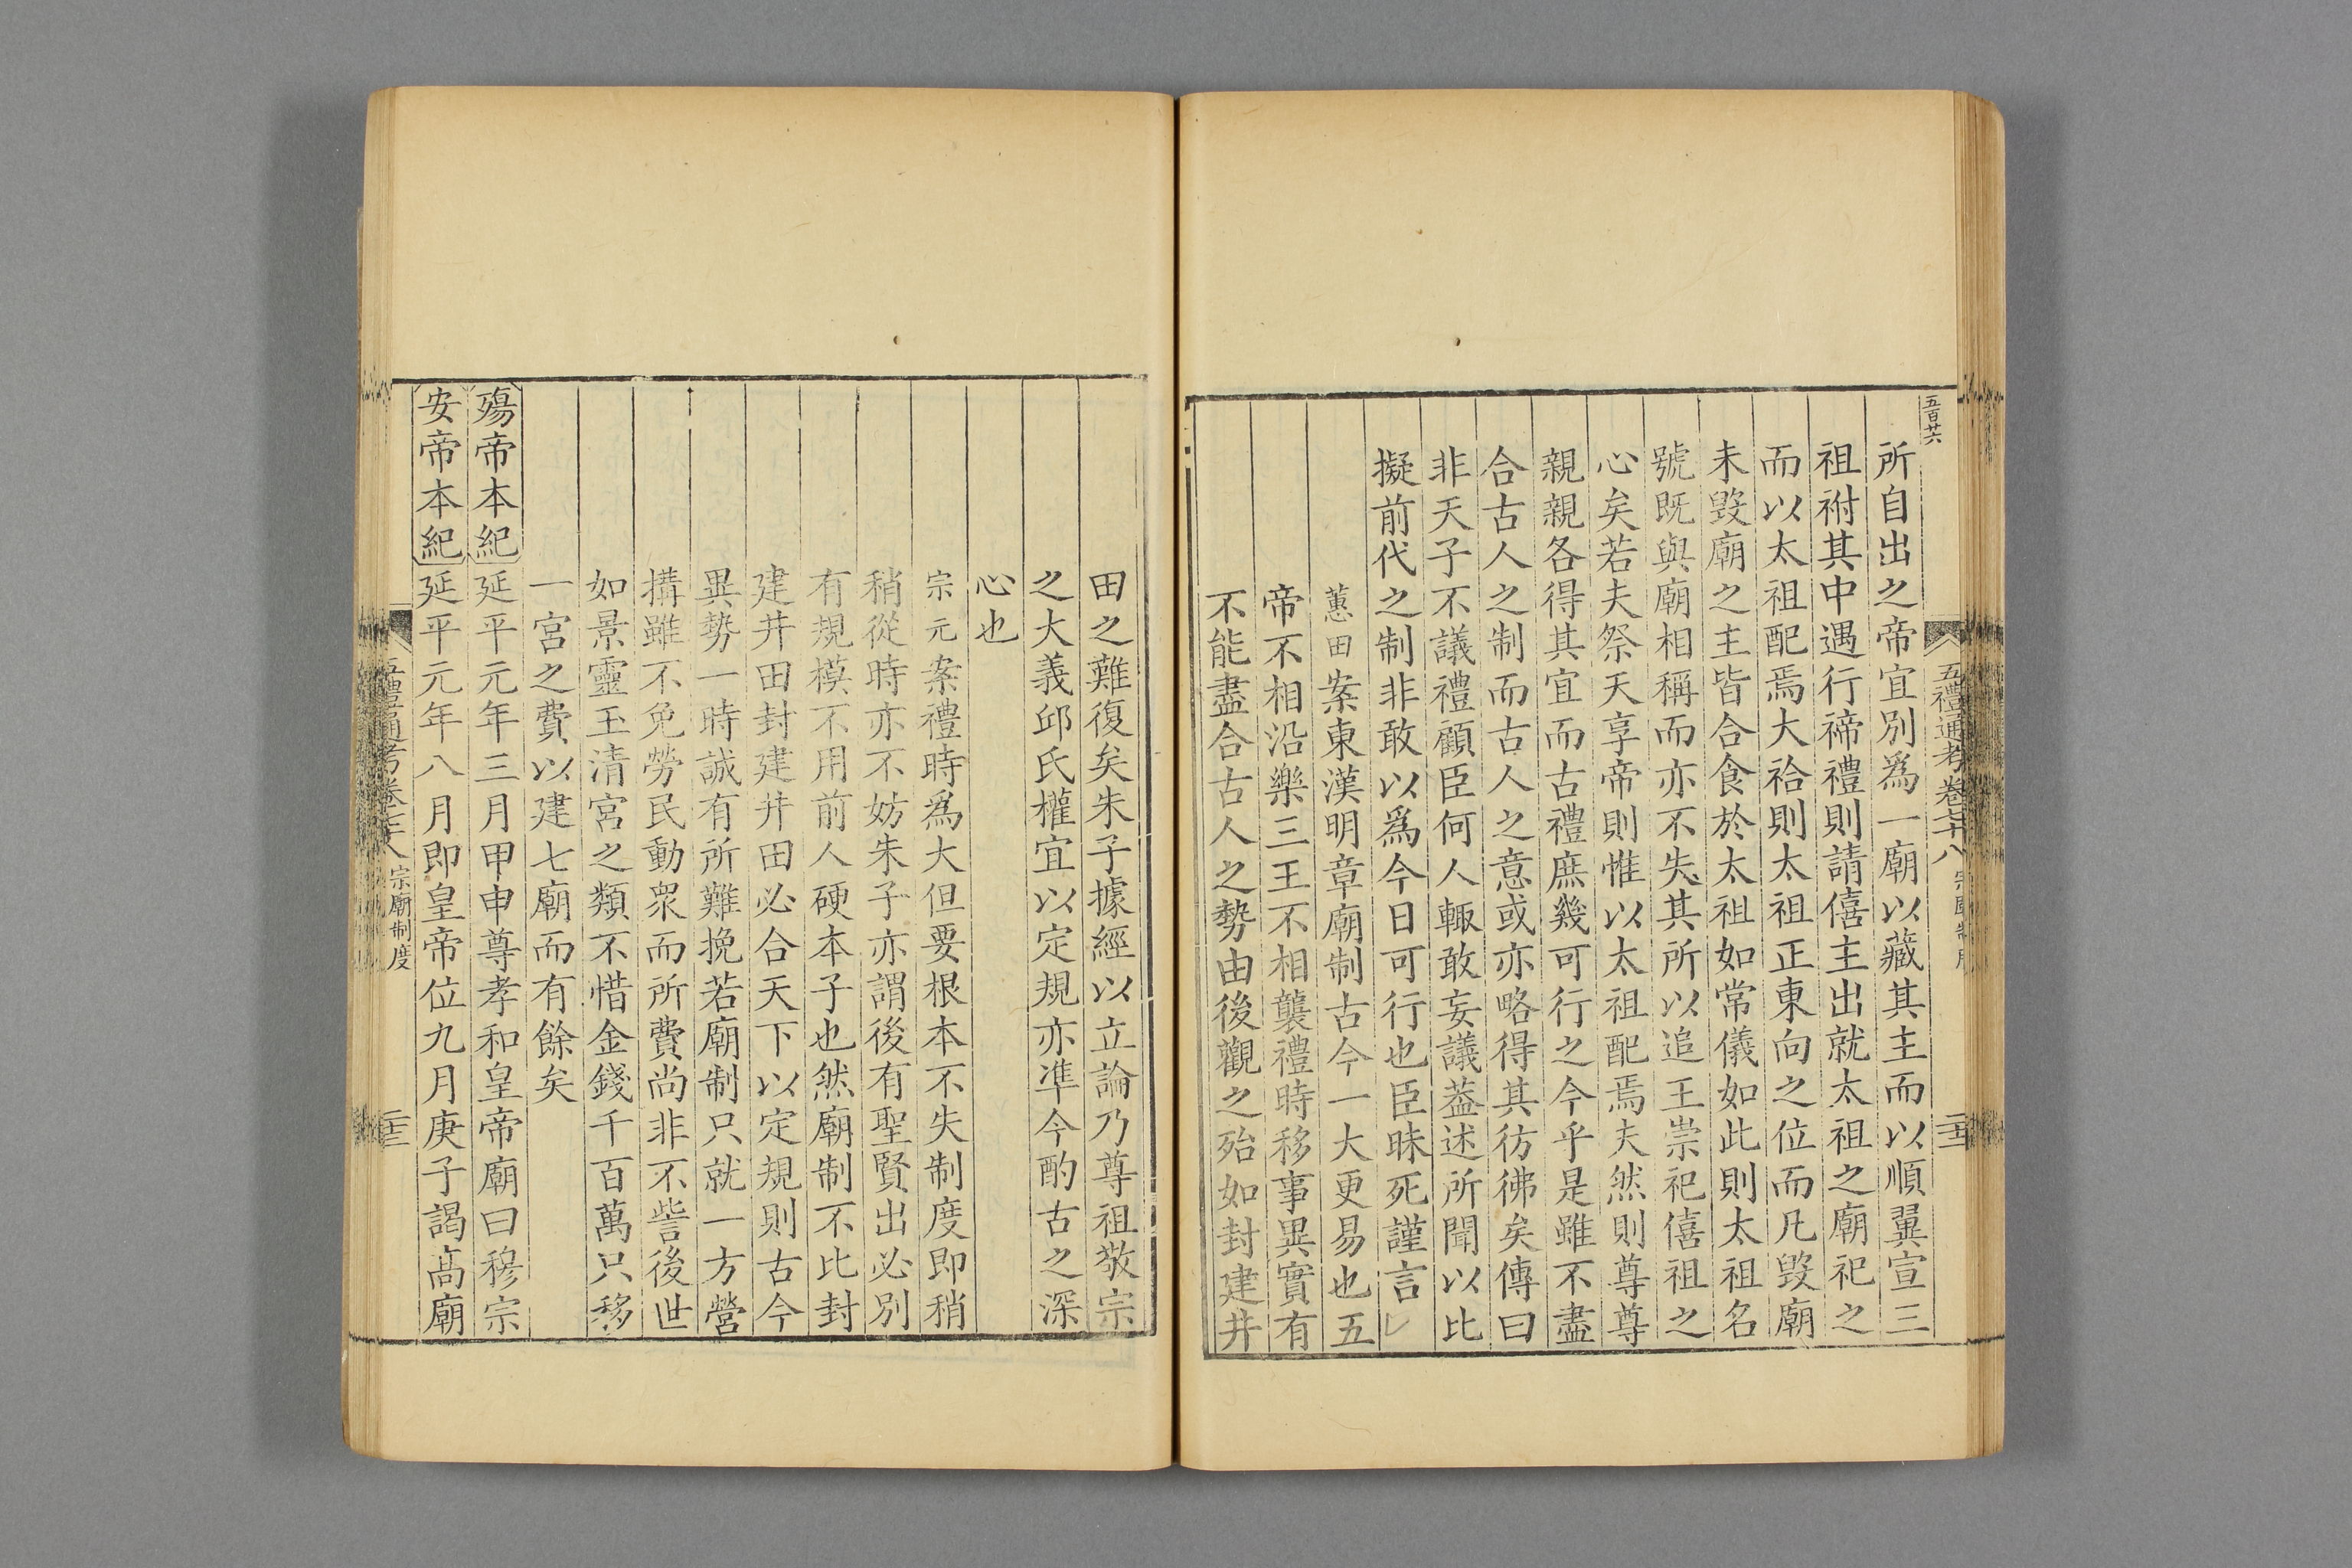 五百廿六
所自出之帝宜別爲一廟以藏其主而以順翼宣三
祖祔其中遇行禘禮則請僖主出就太祖之廟祀之
而以太祖配焉大祫則太祖正東向之位而凡毀廟
未毀廟之主皆合食於太祖如常儀如此則太祖名
號既與廟相稱而亦不失其所以追王崇祀僖祖之
心矣若夫祭天享帝則惟以太祖配焉夫然則尊尊
親親各得其宜而古禮庶幾可行之今乎是雖不盡
合古人之制而古人之意或亦略得其彷彿矣傳曰
非天子不議禮顧臣何人輒敢妄議葢述所聞以比
擬前代之制非敢以爲今日可行也臣昧死謹言
蕙田案東漢明章廟制古今一大更易也五
帝不相沿樂三王不相襲禮時移事異實有
不能盡合古人之勢由後觀之殆如封建井
田之難復矣朱子據經以立論乃尊祖敬宗
之大義邱氏權宜以定規亦準今酌古之深
心也
宗元案禮時爲大但要根本不失制度即稍
稍從時亦不妨朱子亦謂後有聖賢出必別
有規模不用前人硬本子也然廟制不比封
建井田封建井田必合天下以定規則古今
異勢一時誠有所難挽若廟制只就一方營
搆雖不免勞民動衆而所費尚非不訾後世
如景靈玉清宮之類不惜金錢千百萬只移
一宮之費以建七廟而有餘矣
殤帝本紀延平元年三月甲申尊孝和皇帝廟曰穆宗
安帝本紀延平元年八月即皇帝位九月庚子謁高廟
五禮通考卷七十八 宗廟制度